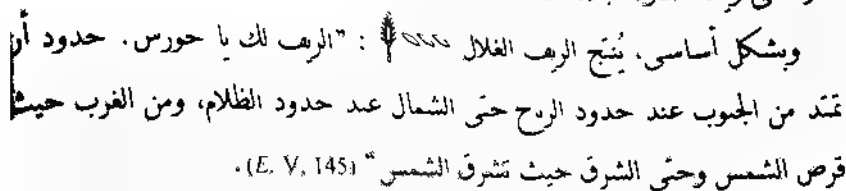 وبشكل أساسى، يُنتج الريف الغلال : "الريف لك يا حورس. حدود أر
تمتد من الجنوب عند حدود الريح حتى الشمال عند حدود الظلام، ومن الغرب حيث
قرص الشمس وحتى الشرق حيث تشرق الشمس" (E. V, 145).